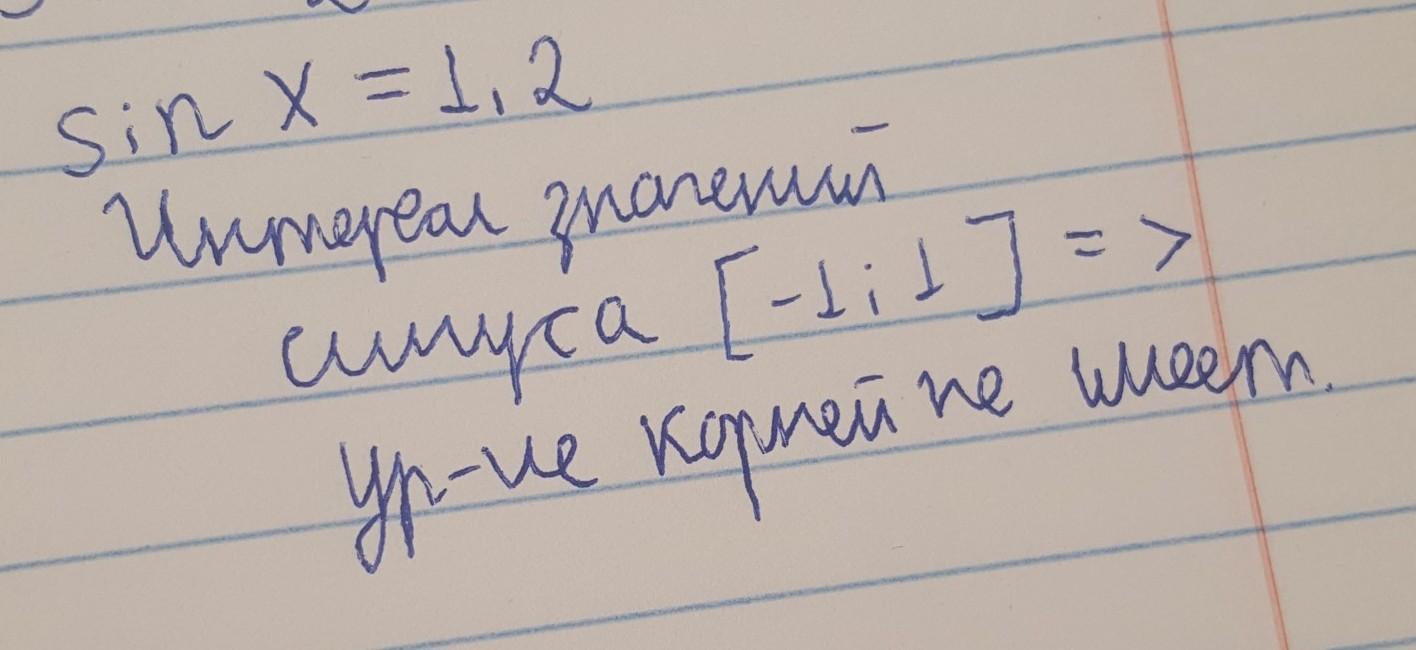 sin x = 1,2
Интервал значений
синуса [-1; 1] =>
Ур-ие корней не имеет.